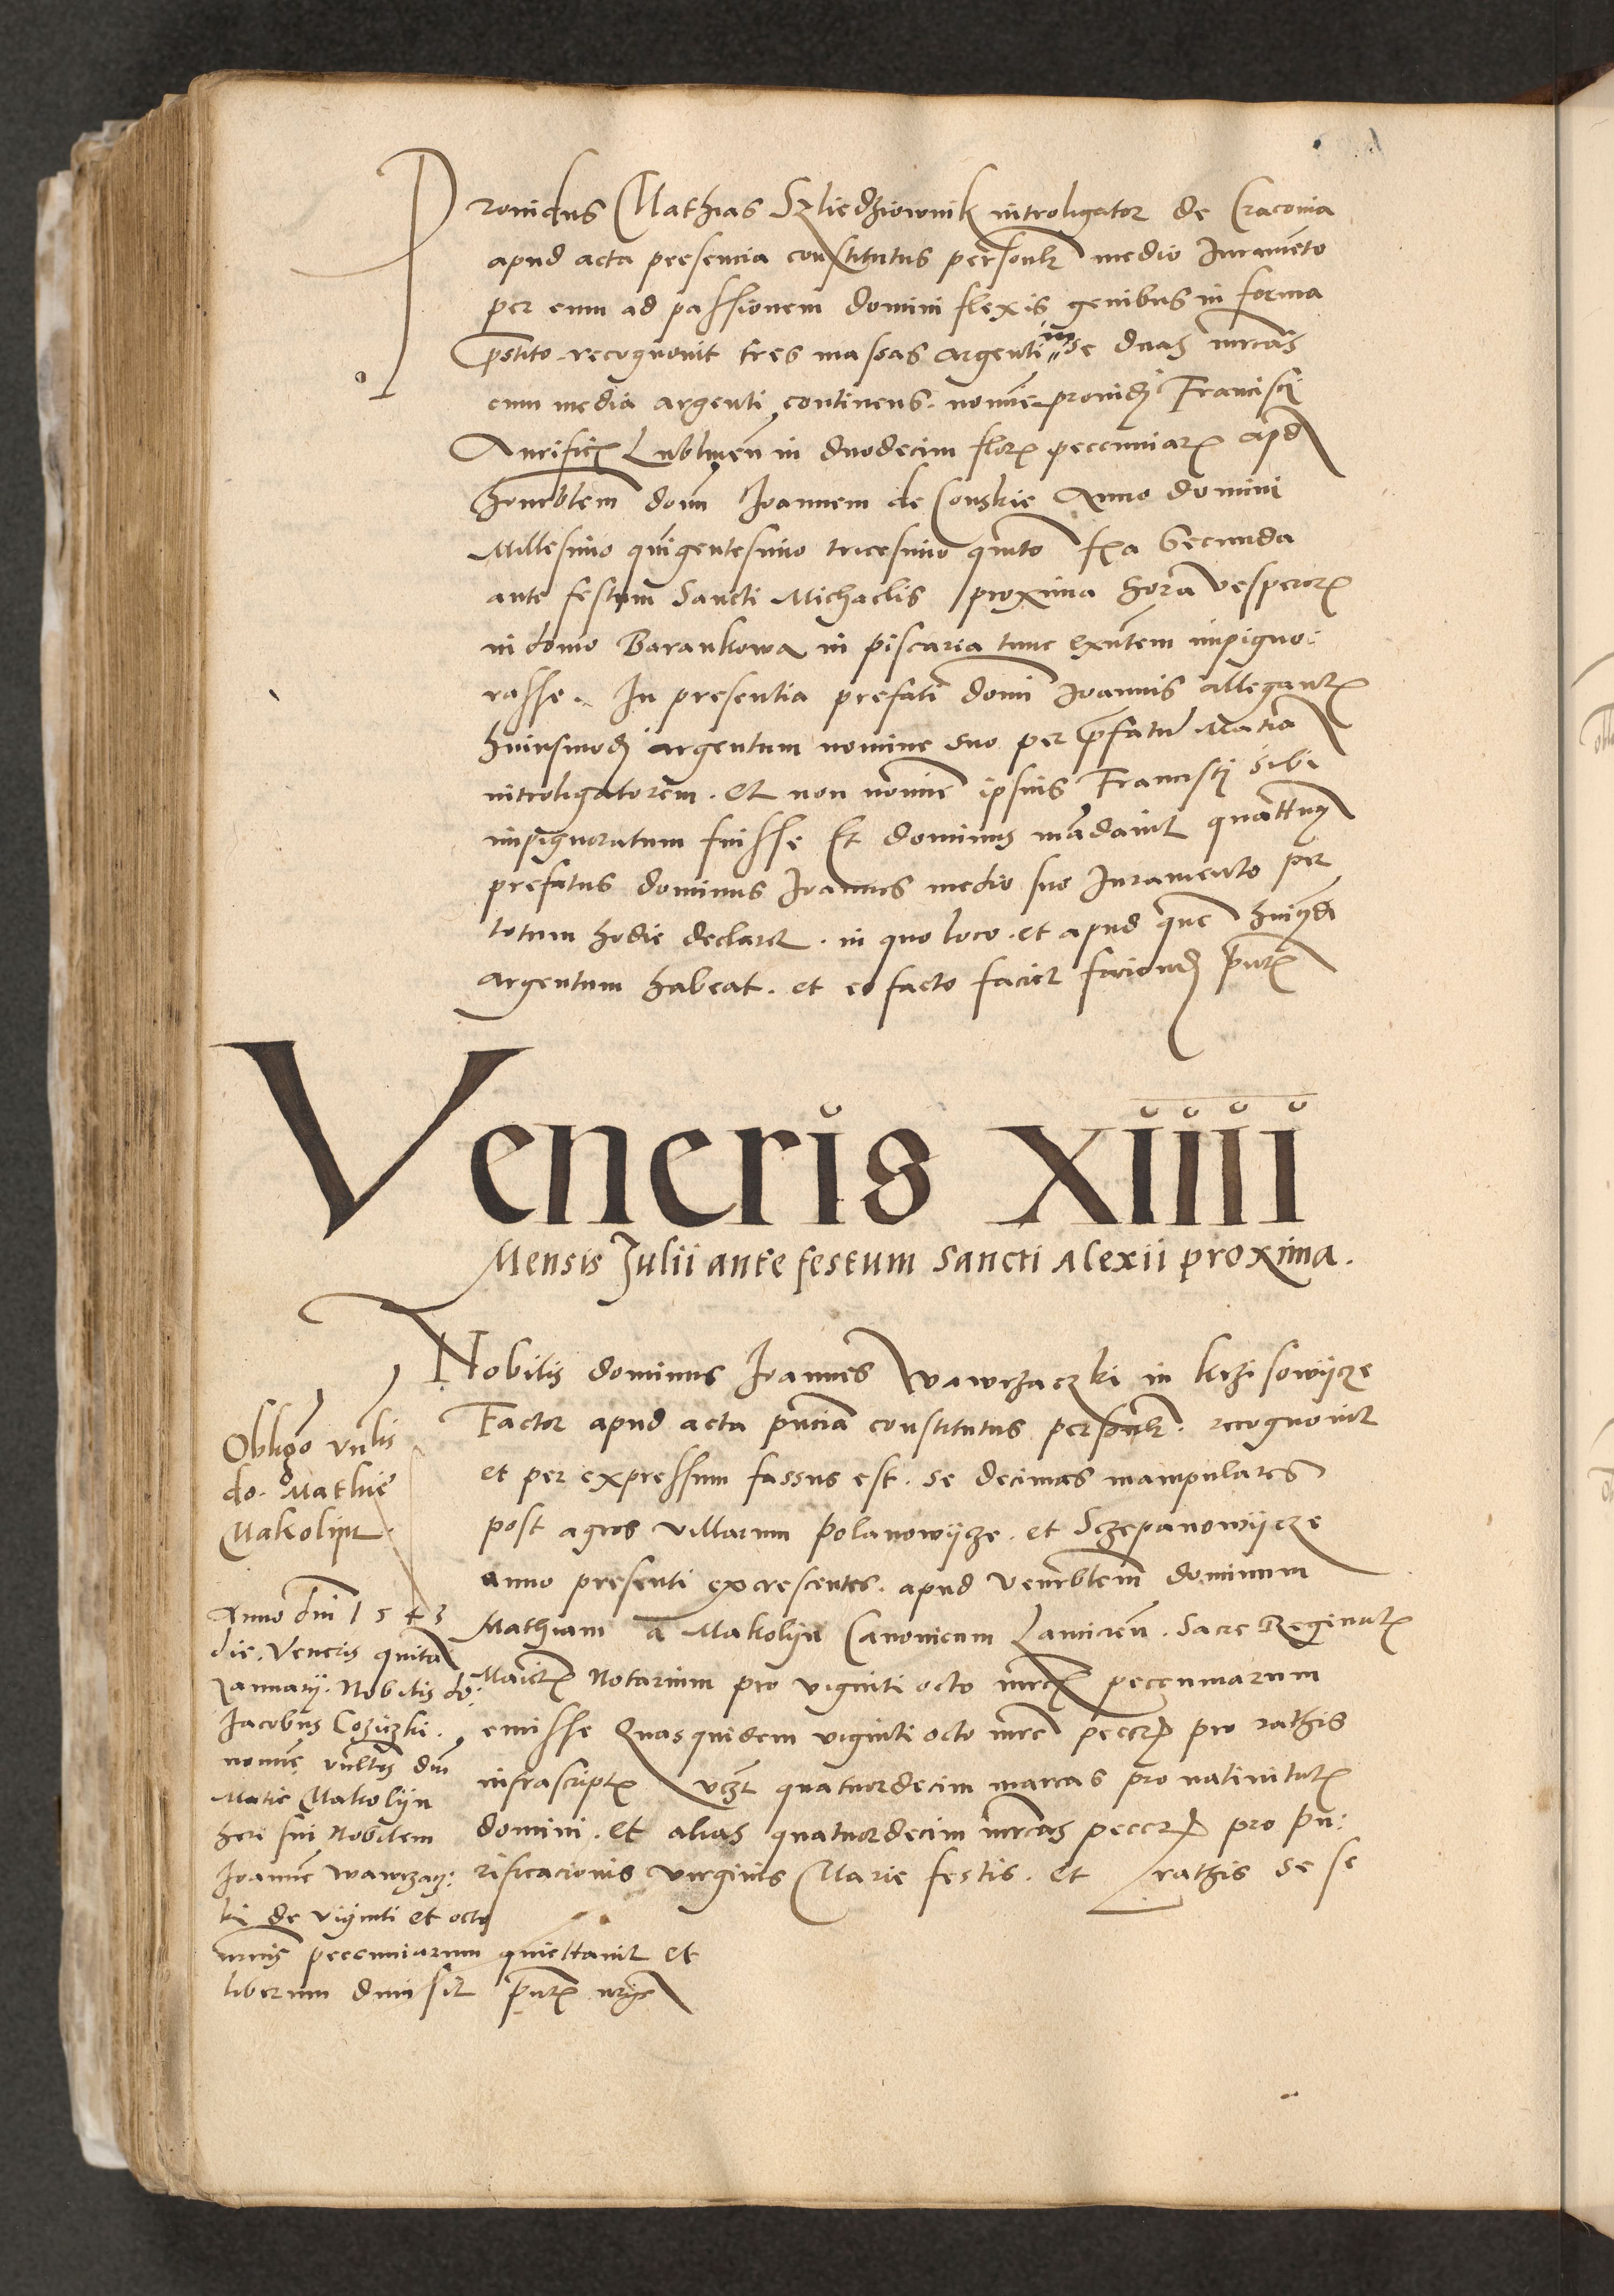 Providus Mathias Szliedziownik introligator de Cracovia
apud acta presencia constitutus personlr medio Juramẽto
per eum ad passionem domini flexis genibus in forma
p̃stito recognovit tres massas argenti in se duas mrcas
cum media argenti continens. nomine providi Francisci
Aurificis Lublinen̄ in duodecim flor pecuniar apud
honorablem dom̃ Joannem de Conskie Anno domini
Millesimo quĩgentesimo tricesimo quĩto fĩa Secunda
ante festum Sancti Michaelis proxima hora vesperor
in domo Barankowa in piscaria tunc exñtem impigno:
rasse. In presentia prefati domĩ Joannis allegant
huiusmodi argentum nomine suo per p̃fatũ Matiã
introligatorem. et non nomine ipsius Francisci sibi
impignoratum fuisse Et dominus mãdavit quatt
prefatus dominus Joannes medio suo Juramento per
totum hodie declaret. in quo loco. et apud quẽ huiꝰdi
argentum habeat. et eo facto faciet faciend p̃nt
Veneris XIIII
Mensis Julii ante festum Sancti Alexii proxima.
Nobilis dominus Joannes Wawrzaczki in Krzisowijcze
Factor apud acta pñcia constitutus personlr. recognovit
et per expressum fassus est. se decimas manipulares
post agros villarum Polanowijcze. et Sczepanowijcze
anno presenti excrescentes. apud Venerablem dominum
Mathiam a Makolijn Canonicum Lancicien̄. Sacre Reginal
Maiest Notarium pro viginti octo mrcis peccuniarum
emisse Quasquidem viginti octo mrc peccr pro rathis
infrascript vz quatuordecim marcas pro nativitat
domini. et alias quatuordecim mrcas peccr pro pu:
rificacionis virginis Marie festis. et rathis se se
Obligo vnlis
do. Mathie
Makolijn
Anno dñi 1543
die. Veneris quĩta
Januarij. Nobilis do:
Jacobus Coziczki.
nomine vnlis dñi
Matie Makolijn
heri sui Nobilem
Joanne Wawrzacz:
ki de viginti et octo
mrcis peccuniarum quiettavit et
liberum dimisit p̃nt